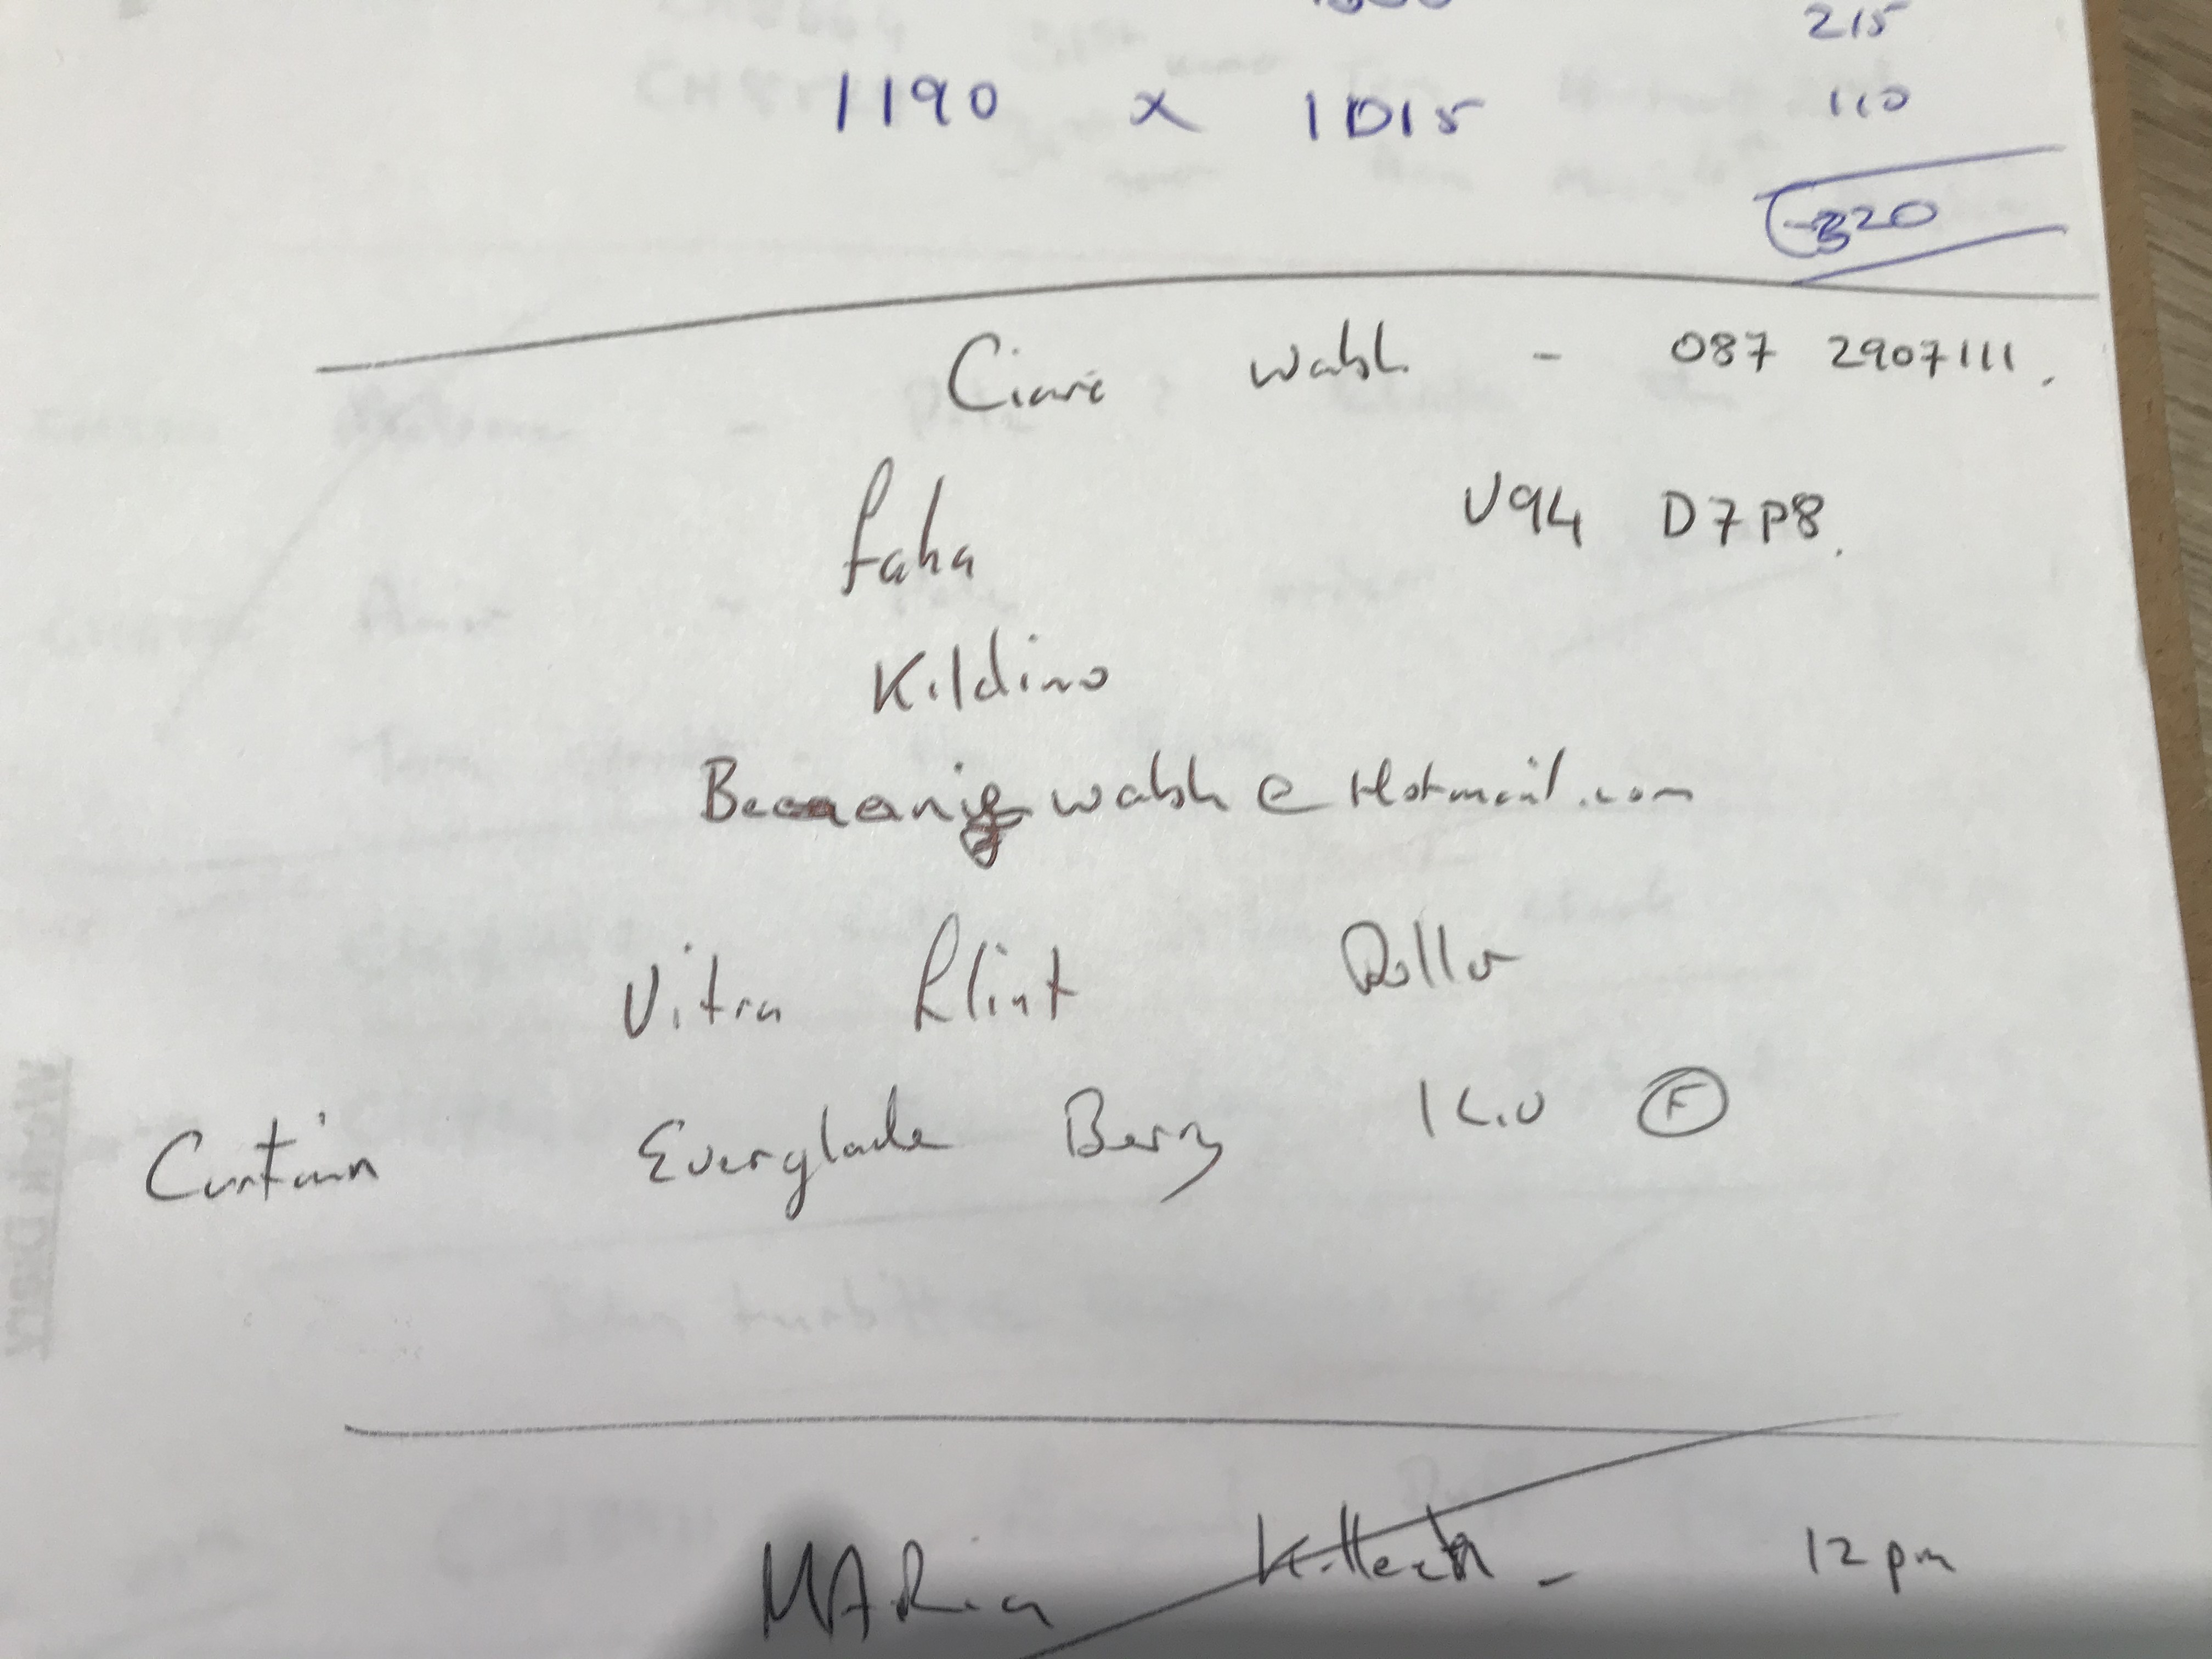 215
1190 x 1015 110
320
Ciara Walsh - 087 2907111.
Faha V94 D7P8.
Kildimo
walsh @ Hotmail.com
Vitra Flint Roller
Curtain Everglade Berry F
MARia - 12 pm
Work Diary